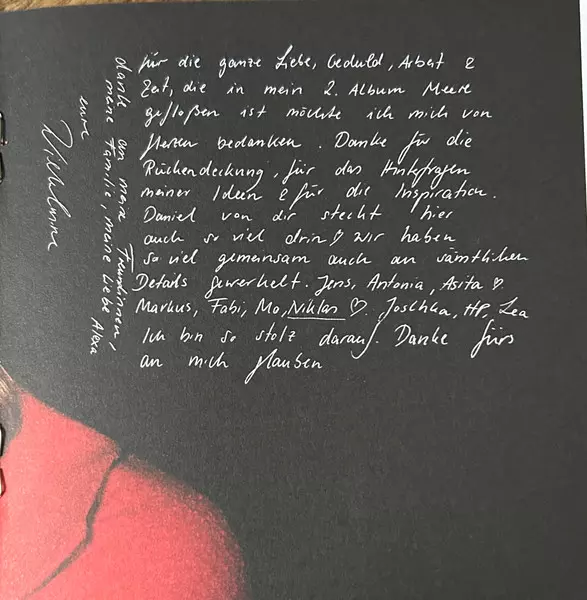 für die ganze Liebe, Geduld, Arbeit &
Zeit, die in mein 2. Album Meere
gefloßen ist möchte ich mich von
Herzen bedanken. Danke für die
Rückendeckung, für das Hinterfragen
meiner Ideen & für die Inspiration.
Daniel von dir steckt hier
auch so viel drin ♡ wir haben
so viel gemeinsam auch an sämtlichen
Details gewerkelt. Jens, Antonia, Asita ♡
Markus, Fabi, Mo, Niklas ♡. Joschka, HP, Lea
Ich bin so stolz darauf. Danke fürs
an mich glauben
danke an meine Freundinnen,
meine Familie, meine Liebe Alexa
eure
Wilhelmine